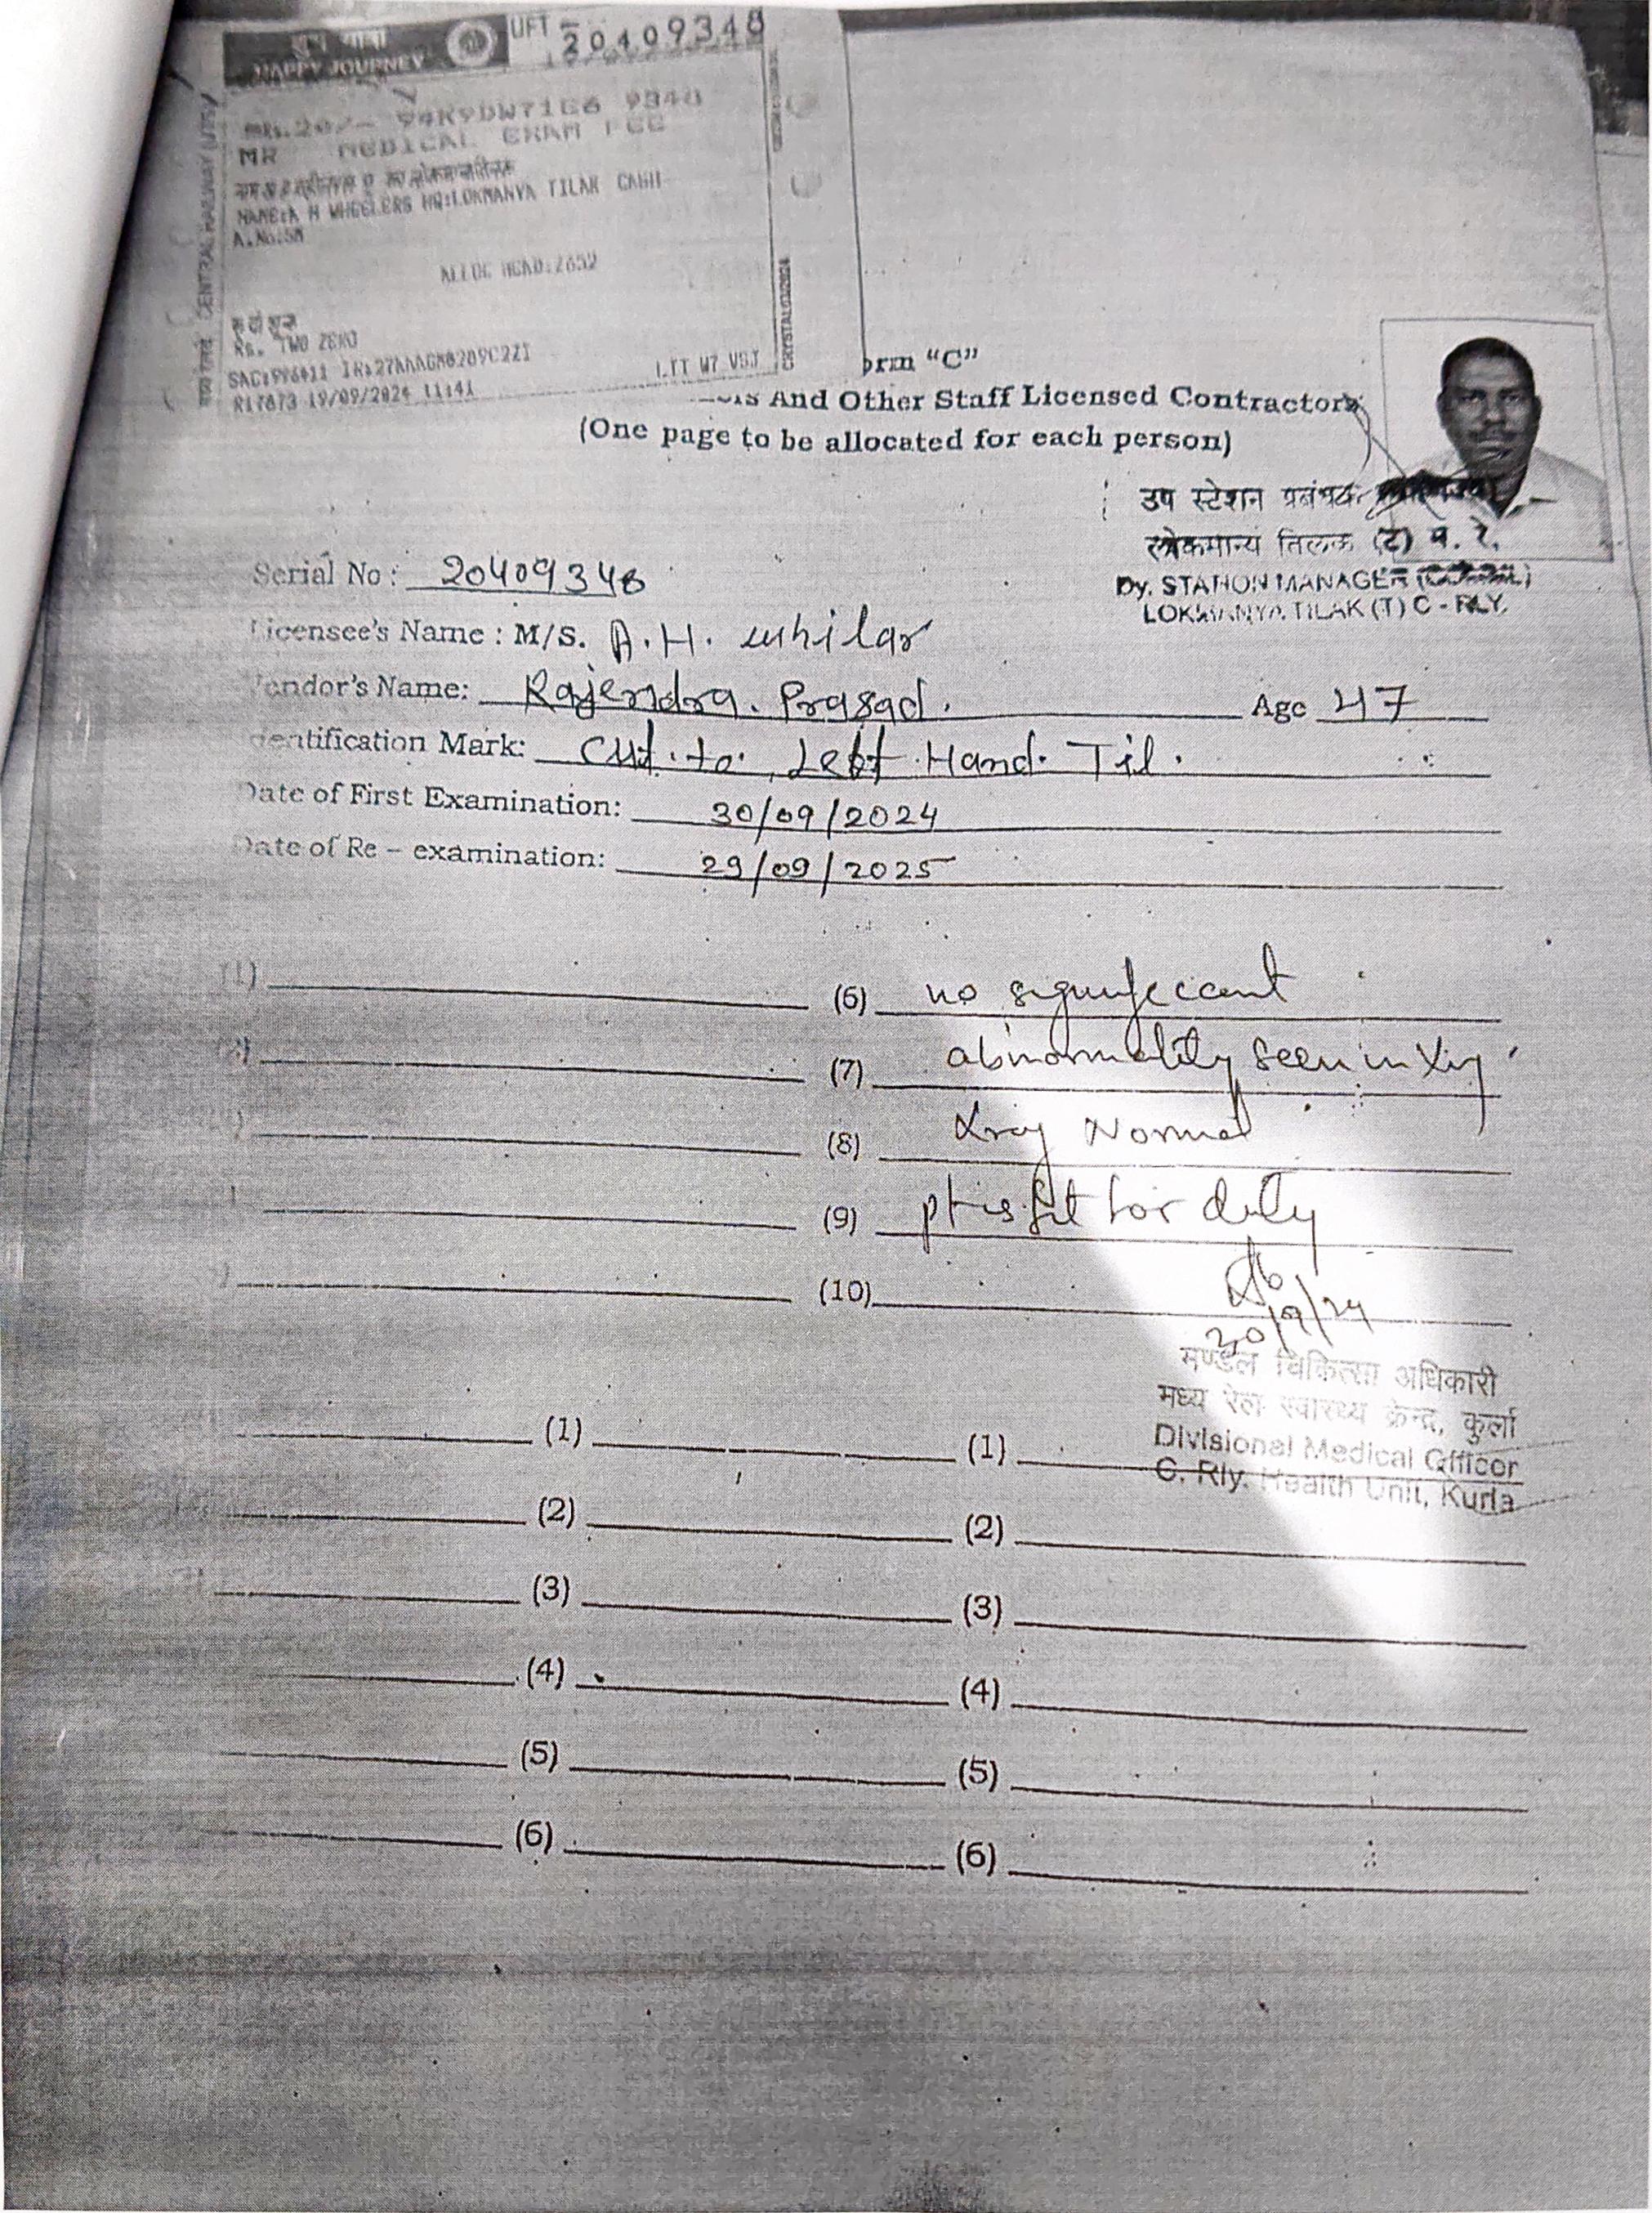 HAPPY JOURNEY
UFT 20409348
CENTRAL RAILWAY (UTS)
Rs.20/- 94K9DW71E6 9348
MR MEDICAL EXAM FEE
NAME:A H WHEELERS HQ:LOKMANYA TILAK CASH
A.No:SM
ALLOC HEAD:2652
Rs. TWO ZERO
R17873 19/09/2024 11:41
orm "C"
And Other Staff Licensed Contractors
(One page to be allocated for each person)
उप स्टेशन प्रबंधक
लोकमान्य तिलक (ट) म. रे.
Dy. STATION MANAGER
LOKMANYA TILAK (T) C - RLY.
Serial No : 20409348
Licensee's Name : M/S. A.H. whilar
Vendor's Name: Rajendra. Prasad. Age 47
dentification Mark: Cut. to. Left. Hand. Til.
Date of First Examination: 30/09/2024
Date of Re - examination: 29/09/2025
(1) (6) no significant
(7) abnormality seen in
(8) Xray Normal
(9) pt is fit for duty
(10)
मण्डल चिकित्सा अधिकारी
मध्य रेल स्वास्थ्य केन्द्र, कुर्ला
Divisional Medical Officer
C. Rly. Health Unit, Kurla
(1) (1)
(2) (2)
(3) (3)
(4) (4)
(5) (5)
(6) (6)